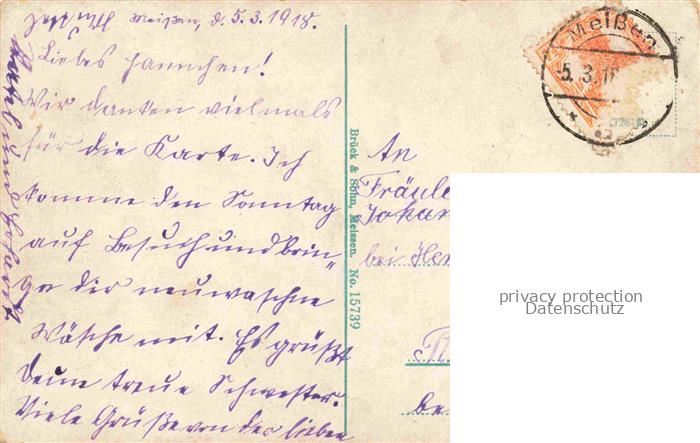 Meißen, d. 5.3.1918.
Liebes Hannchen!
Wir danken vielmals
für die Karte. Ich
komme den Sonntag
auf Besuch und brin-
ge dir neuwaschne
Wäsche mit. Es grüßt
Deine treue Schwester.
Viele Grüße von der lieben
Brück & Sohn, Meissen. No. 15739
Meißen
5.3.18
An
Fräule
Johan
bei Her
be
privacy protection
Datenschutz